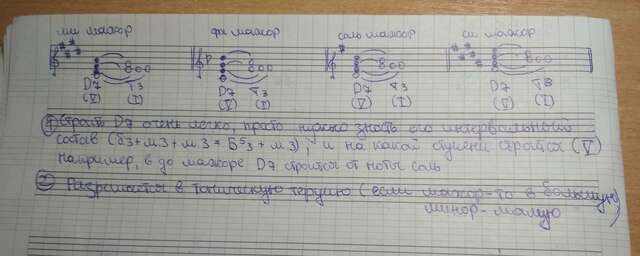 ми мажор фа мажор соль мажор си мажор
D7 T3 D7 T3 D7 T3 D7 T3
(V) (I) (V) (I) (V) (I) (V) (I)
1) Строить D7 очень легко, просто нужно знать его интервальный
состав (б3+м3+м3 = Б⁵3 + м3), и на какой ступени строится (V)
Например, в до мажоре D7 строится от ноты соль
2) Разрешается в тоническую терцию (если мажор-то в большую,
минор-малую)